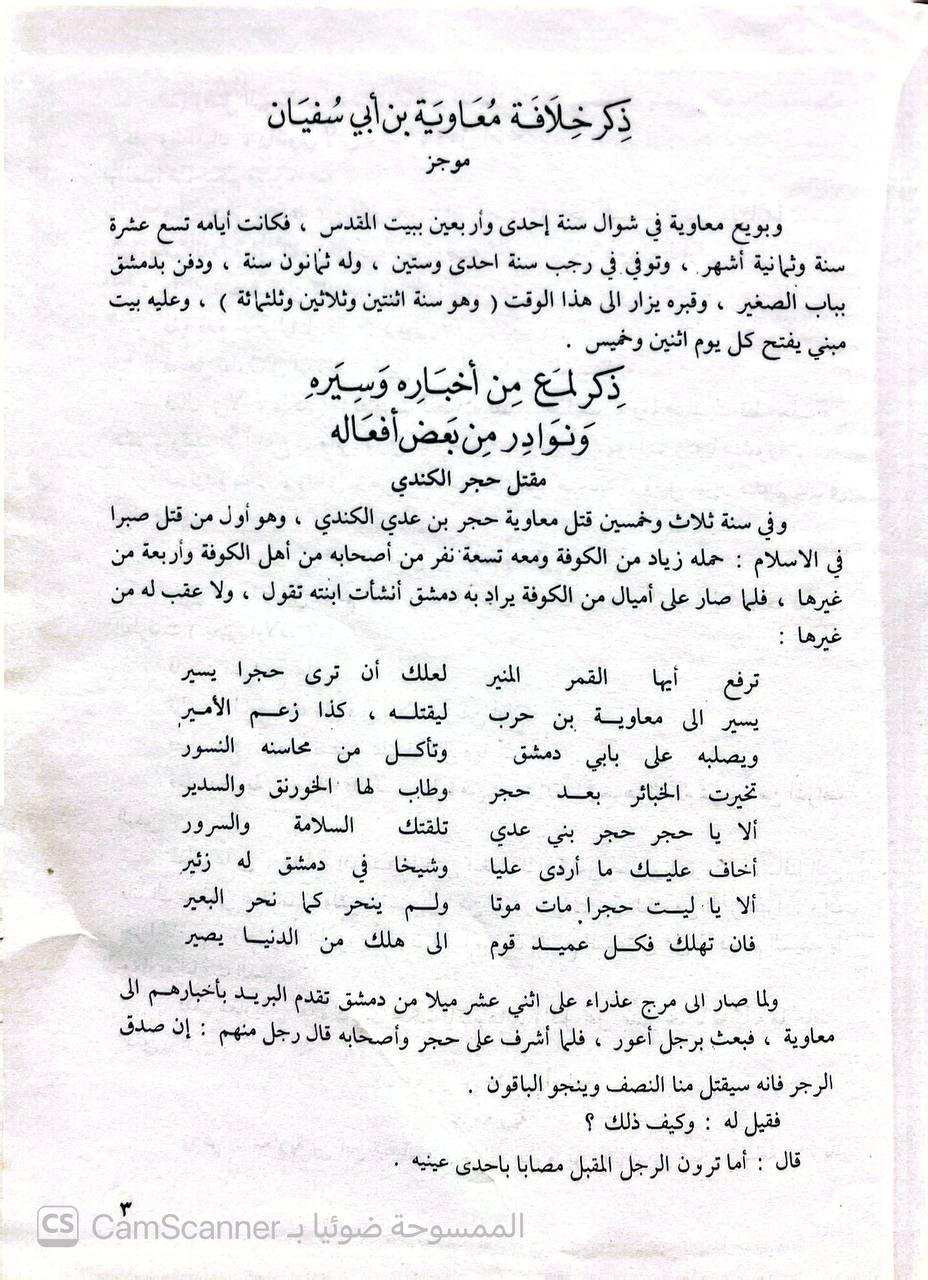 ذِكر خِلَافَة مُعَاويَة بن أبي سُفيَان
موجز
وبويع معاوية في شوال سنة إحدى وأربعين ببيت المقدس ، فكانت أيامه تسع عشرة
سنة وثمانية أشهر ، وتوفي في رجب سنة احدى وستين ، وله ثمانون سنة ، ودفن بدمشق
بباب الصغير ، وقبره يزار الى هذا الوقت ( وهو سنة اثنتين وثلاثين وثلثمائة ) ، وعليه بيت
مبني يفتح كل يوم اثنين وخميس .
ذِكر لمَع مِن أخبَاره وَسِيَره
وَنوَادِر مِن بَعض أفعَاله
مقتل حجر الكندي
وفي سنة ثلاث وخمسين قتل معاوية حجر بن عدي الكندي ، وهو أول من قتل صبرا
في الاسلام : حمله زياد من الكوفة ومعه تسعة نفر من أصحابه من أهل الكوفة وأربعة من
غيرها ، فلما صار على أميال من الكوفة يراد به دمشق أنشأت ابنته تقول ، ولا عقب له من
غيرها :
ترفع أيها القمر المنير لعلك أن ترى حجرا يسير
يسير الى معاويــة بن حرب ليقتلــه ، كذا زعــم الأميـر
ويصلبه على بابي دمشق وتأكــل من محاسنه النسور
تخيرت الخبائر بعــد حجر وطاب لها الخورنق والسدير
ألا يا حجر حجر بني عدي تلقتك السلامة والسرور
أخاف عليــك ما أردى عليا وشيخا في دمشق له زئير
ألا يا ليــت حجرا مات موتا ولــم ينحر كما نحر البعير
فان تهلك فكــل عميــد قوم الى هلك من الدنيــا يصير
ولما صار الى مرج عذراء على اثني عشر ميلا من دمشق تقدم البريــد بأخبارهــم الى
معاوية ، فبعث برجل أعور ، فلما أشرف على حجر وأصحابه قال رجل منهم : إن صدق
الزجر فانه سيقتل منا النصف وينجو الباقون .
فقيل له : وكيف ذلك ؟
قال : أما ترون الرجل المقبل مصابا باحدى عينيه .
٣
CS CamScanner الممسوحة ضوئيا بـ